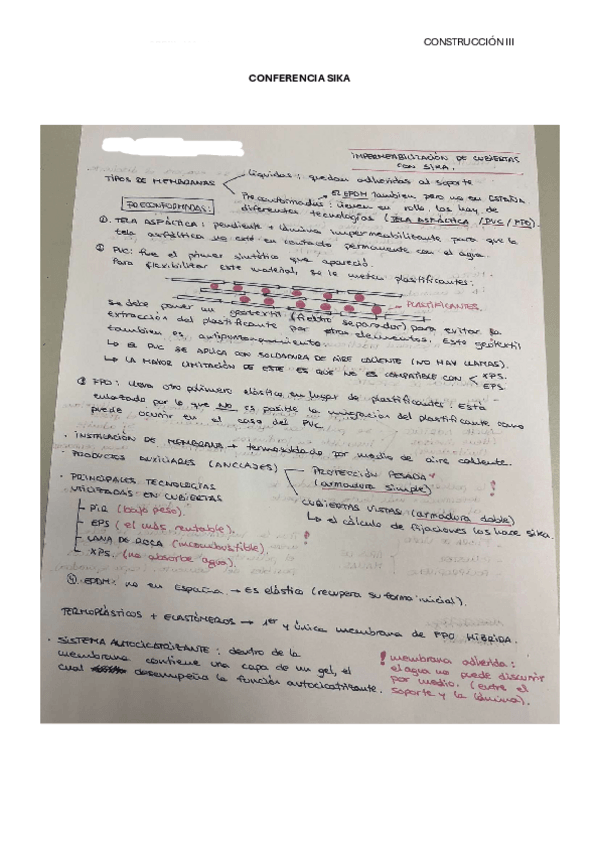 CONSTRUCCIÓN III
CONFERENCIA SIKA
IMPERMEABILIZACIÓN DE CUBIERTAS
CON SIKA.
TIPOS DE MEMBRANAS
Líquidas: quedan adheridas al soporte
El EPDM también pero no en ESPAÑA
Preconformadas: vienen en rollo, las hay de
diferentes tecnologías (TELA ASFÁLTICA / PVC / FPO).
PRECONFORMADAS:
①. TELA ASFÁLTICA: pendiente + lámina impermeabilizante para que la
tela asfáltica no esté en contacto permanente con el agua.
② PVC: fue el primer sintético que apareció.
Para flexibilizar este material, se le meten plastificantes:
→ PLASTIFICANTES.
Se debe poner un geotextil (fieltro separador) para evitar la
extracción del plastificante por otros elementos. Este geotextil
también es antipunzonamiento.
↳ EL PVC SE APLICA CON SOLDADURA DE AIRE CALIENTE (NO HAY LLAMAS).
↳ LA MAYOR LIMITACIÓN DE ESTE ES QUE NO ES COMPATIBLE CON XPS.
EPS.
③ FPO: lleva otro polímero elástico en lugar de plastificantes. Está
enlazado por lo que NO es posible la migración del plastificante como
puede ocurrir en el caso del PVC.
· INSTALACIÓN DE MEMBRANA → termosoldado por medio de aire caliente.
· PRODUCTOS AUXILIARES (ANCLAJES)
PROTECCIÓN PESADA
(armadura simple)
!
CUBIERTAS VISTAS (armadura doble)
↳ el cálculo de fijaciones los hace sika.
· PRINCIPALES TECNOLOGÍAS
UTILIZADAS EN CUBIERTAS
PIR (bajo peso).
EPS (el más rentable).
LANA DE ROCA (incombustible). !
XPS. (no absorbe agua).
④. EPDM: no en España → Es elástico (recupera su forma inicial).
TERMOPLÁSTICOS + ELASTÓMEROS → 1er y única membrana de FPO HÍBRIDA.
· SISTEMA AUTOCICATRIZANTE: dentro de la
membrana contiene una capa de un gel, el
cual desempeña la función autocicatrizante.
! membrana adherida:
el agua no puede discurrir
por medio. (entre el
soporte y la lámina).